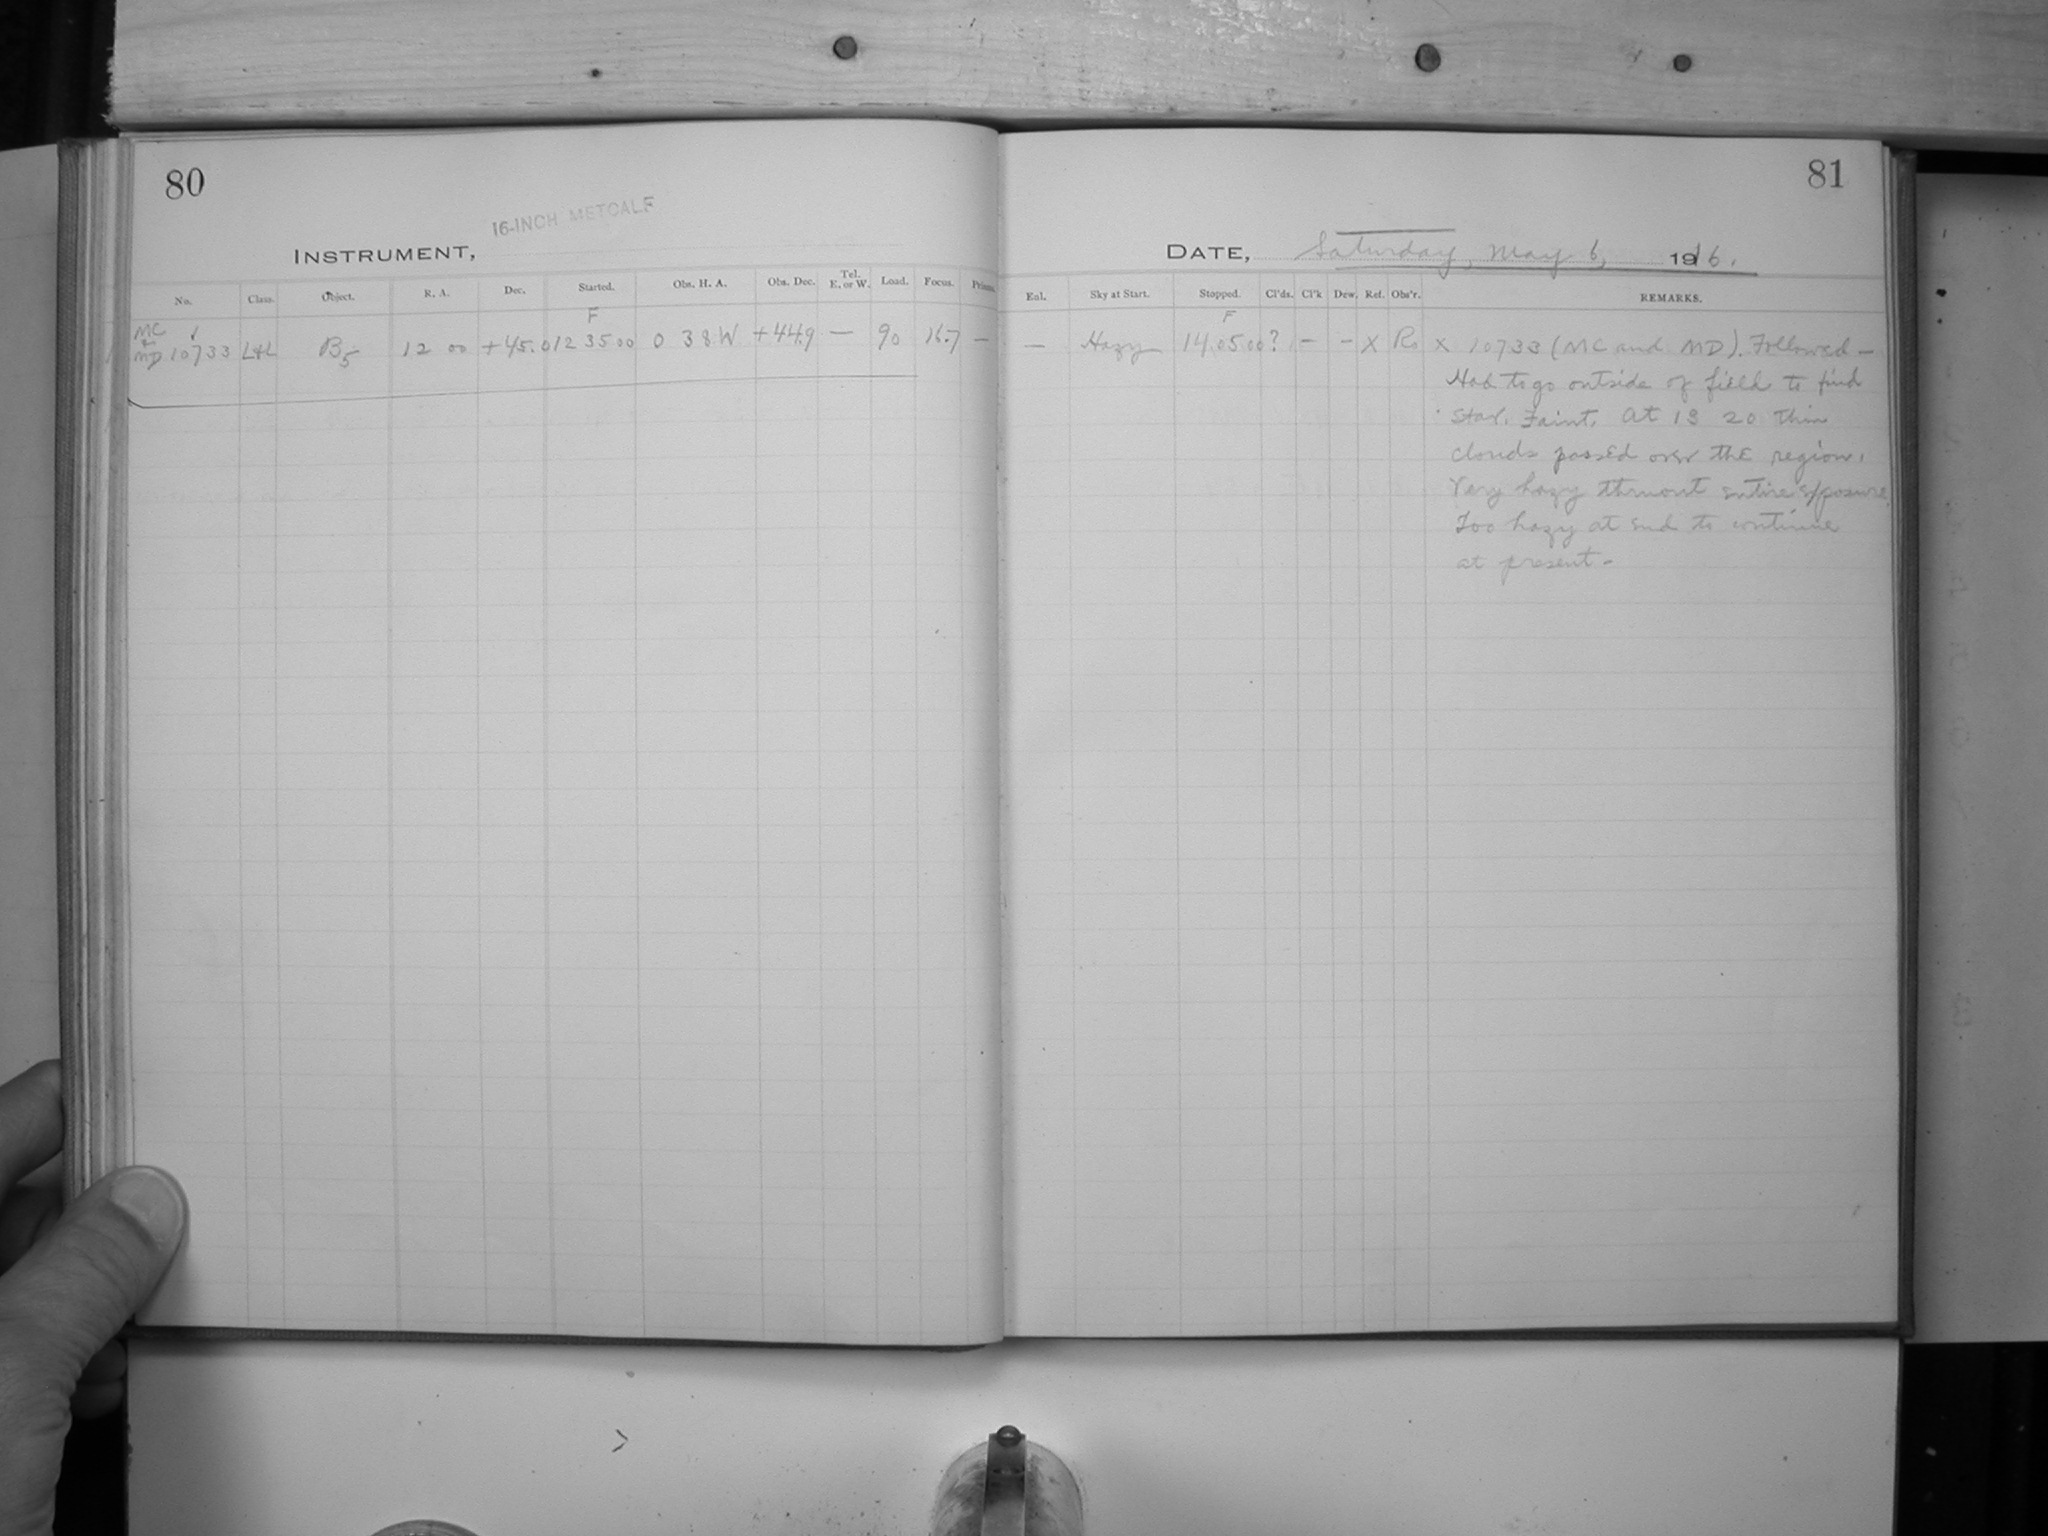 80
16-INCH METCALF
INSTRUMENT,
No. Class. Object. R. A. Dec. Started. Obs. H. A. Obs. Dec. Tel. E. or W. Load. Focus. Prisms
F
MC
& MD 10733 L&L B5 12 00 +45.0 12 35 00 0 38 W +44.9 — 90 16.7 —
81
DATE, Saturday, May 6, 1916.
Eal. Sky at Start. Stopped. Cl'ds. Cl'k Dew. Ref. Obs'r. REMARKS.
F
— Hazy 14 05 00 ? — — X Ro x 10733 (MC and MD). Followed —
Had to go outside of field to find
star. Faint. At 13 20 thin
clouds passed over the region.
Very hazy thruout entire exposure
Too hazy at end to continue
at present —